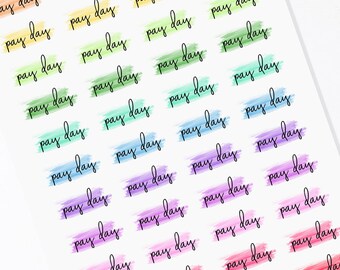 pay day pay day
pay day pay day pay day
pay day pay day pay day pay day
pay day pay day pay day pay day
pay day pay day pay day pay day
pay day pay day pay day pay day
pay day pay day pay day pay day
pay day pay day pay day
pay day pay day